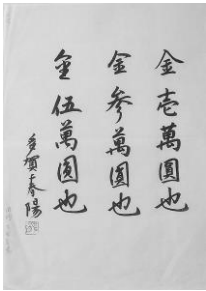 金壱萬圓也
金参萬圓也
金伍萬圓也
多賀春陽